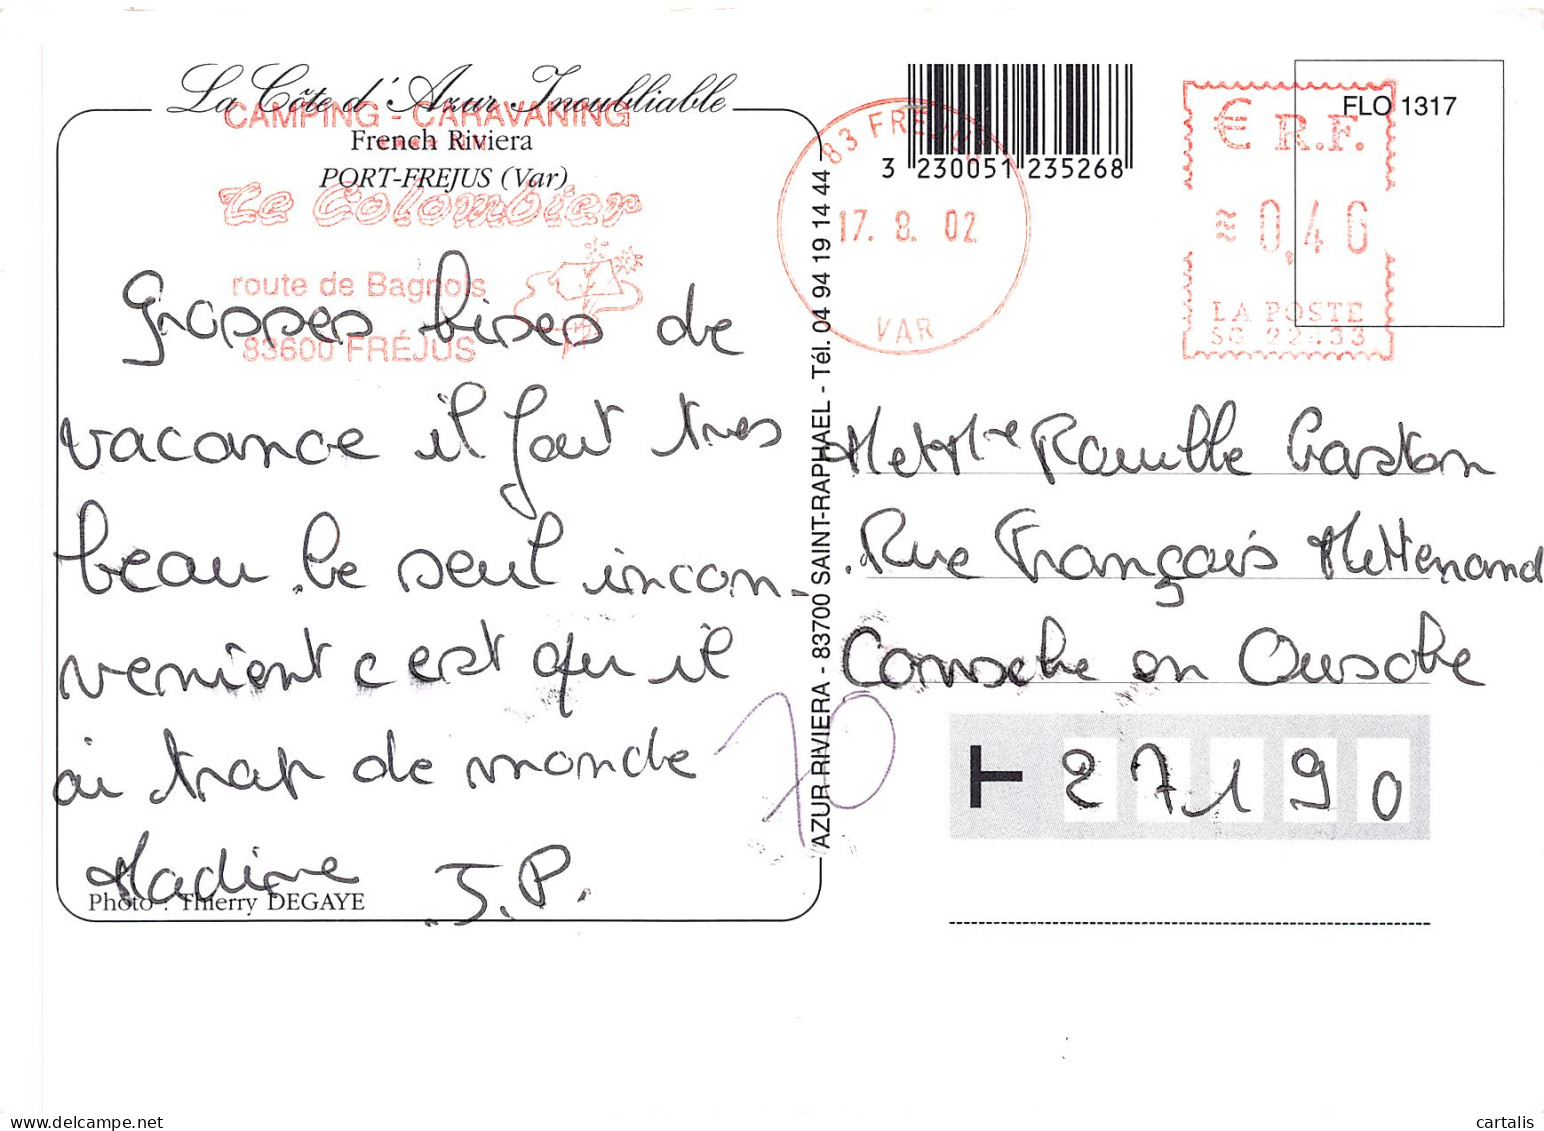 La Côte d'Azur Inoubliable
CAMPING - CARAVANING
French Riviera
**** NN
PORT-FREJUS (Var)
Le Colombier
route de Bagnols
83600 FRÉJUS
Grosses bises de
vacance il fait tres
beau. le seul incon-
venient c est qu il
ai trop de monde
Madine J.P.
Photo : Thierry DEGAYE
AZUR RIVIERA - 83700 SAINT-RAPHAEL - Tél. 04 94 19 14 44
3 230051 235268
83 FREJUS
17. 8. 02
VAR
FLO 1317
€ R.F.
≈ 0,46
LA POSTE
SG 22433
Me Gaston
Rue François Mettenand
Consche en Ousche
27190
70
cartalis